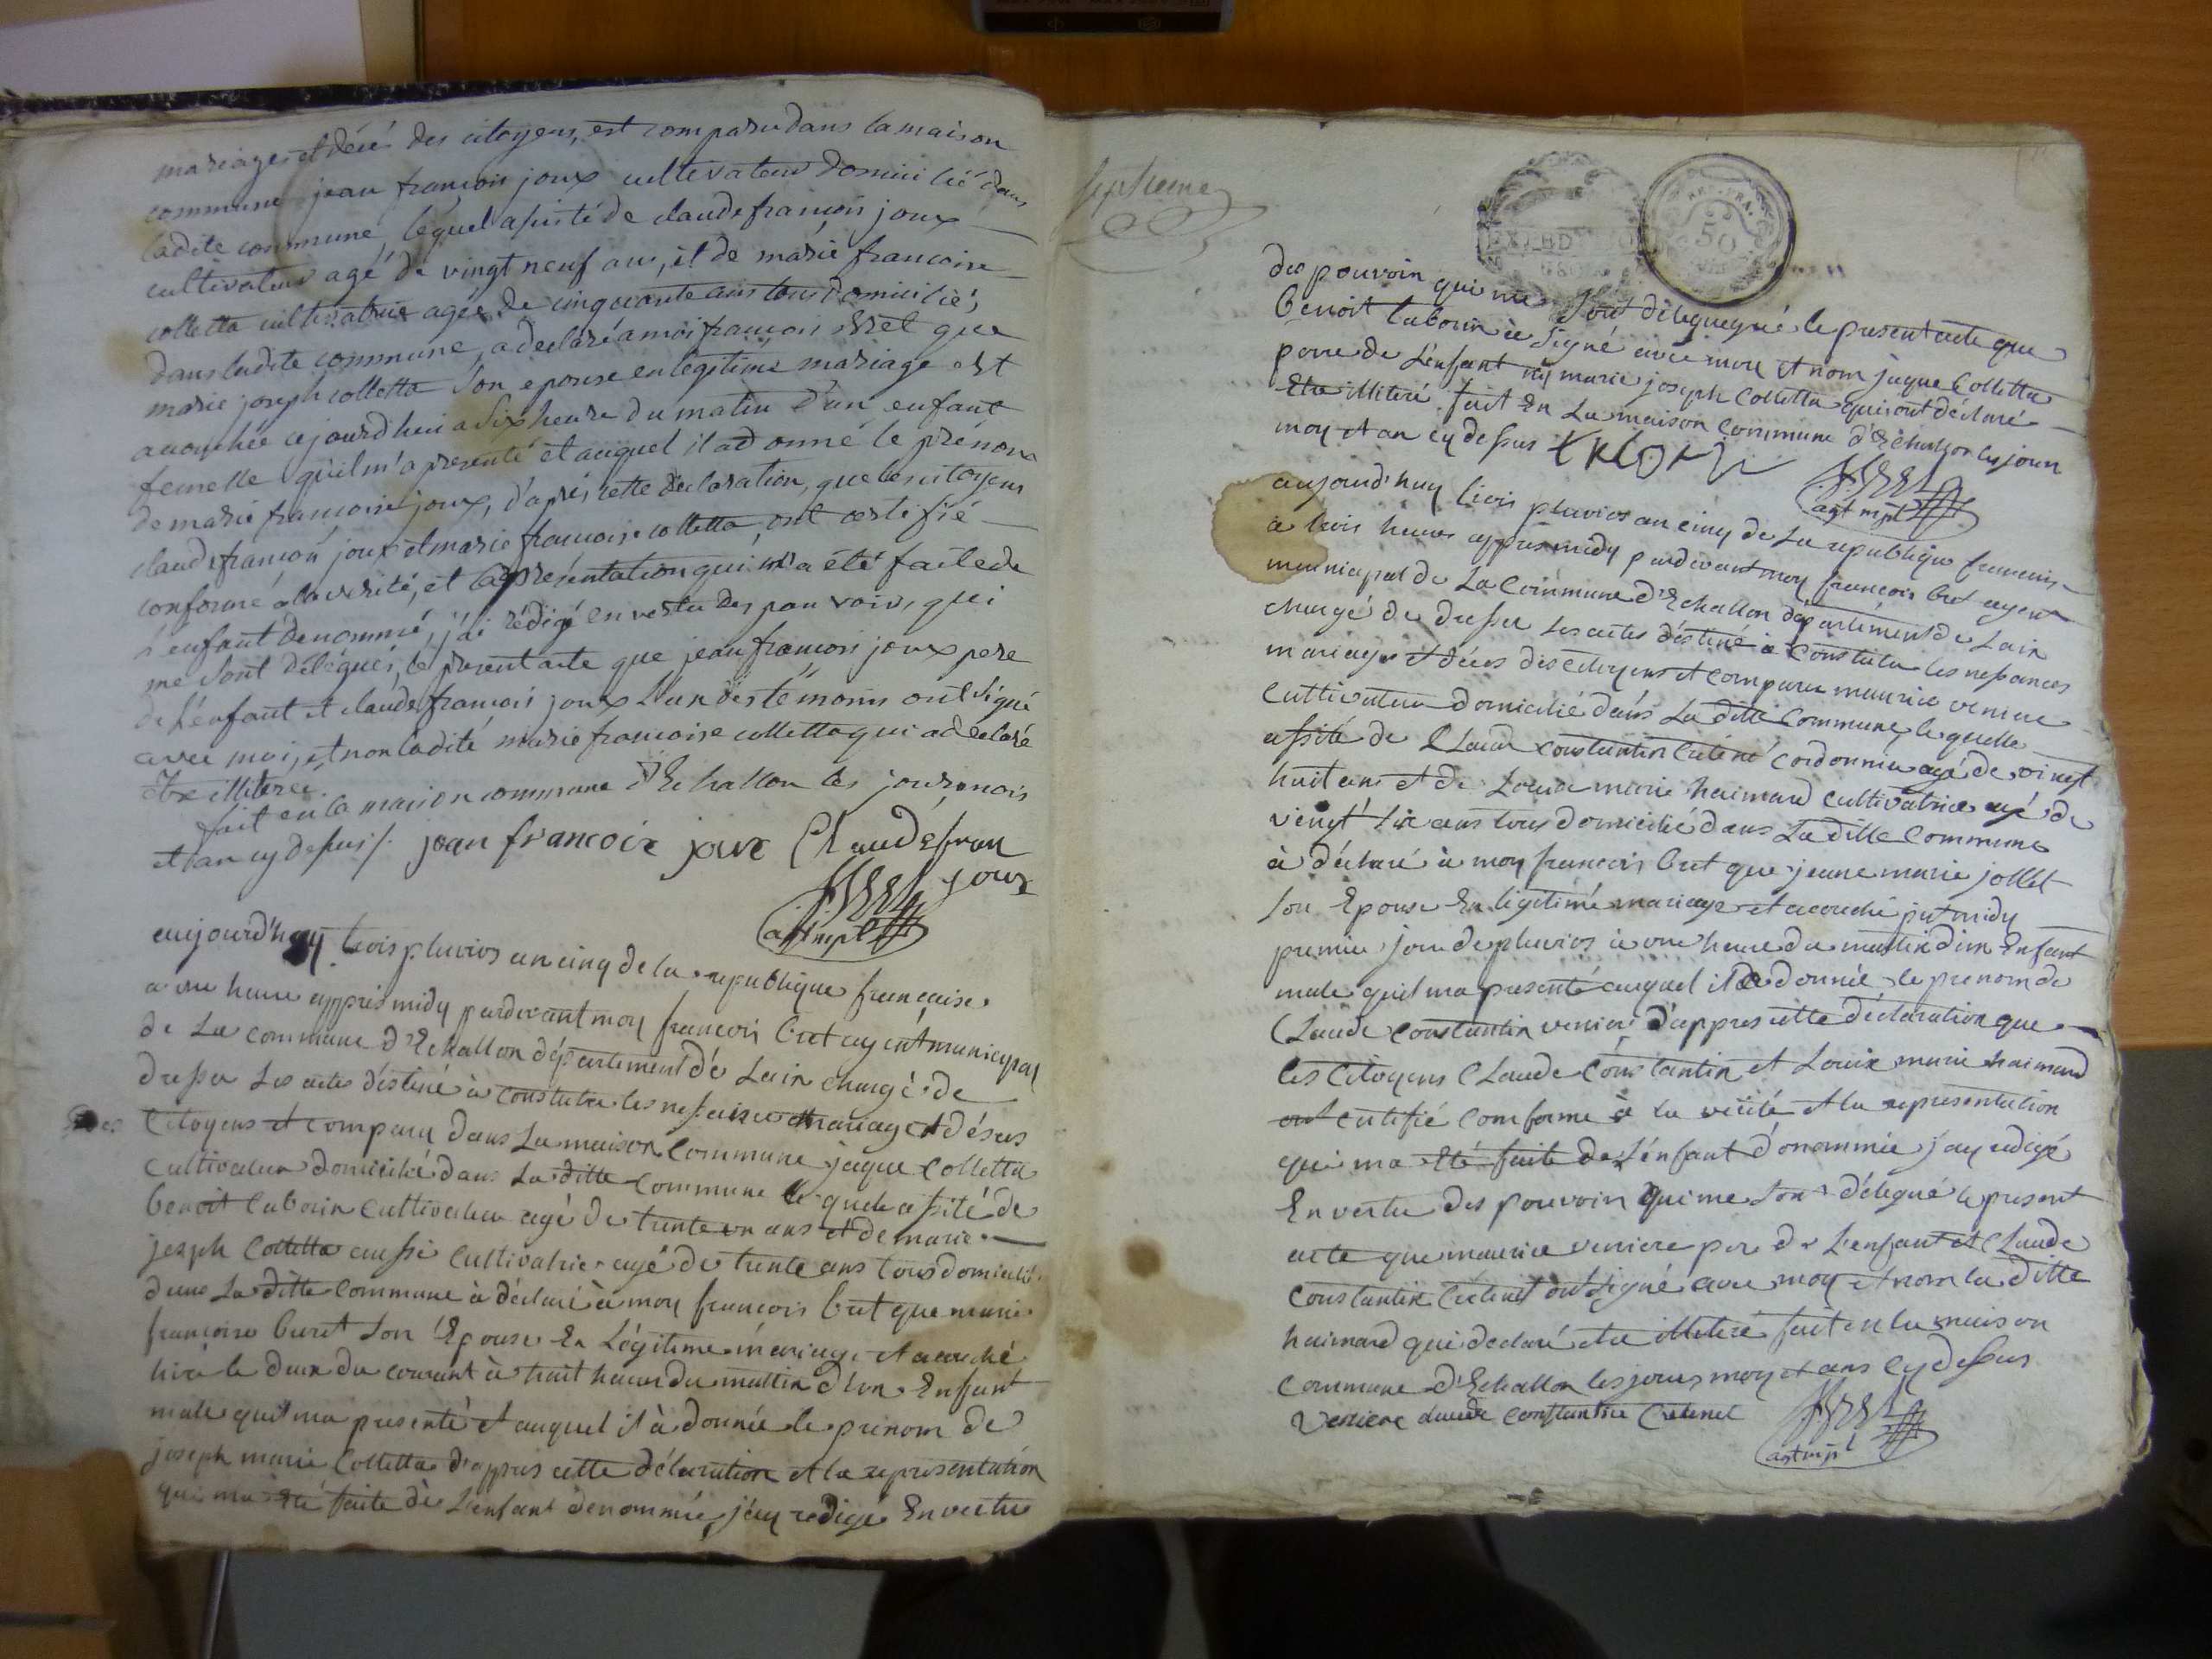 mariages et décé des citoyens, est comparu dans la maison
commune jean françois joux cultivateur domicilié dans
ladite commune, lequel assisté de claude françois joux
cultivateur agé de vingt neuf ans, et de marie francoise
colletta cultivatrice agée de cinquante ans tous domicilié,
dans ladite commune, a declaré a moi francois Bret que
marie joseph colletta son epouse en legitime mariage est
acouchée cejourd'hui a six heure du matin d'un enfant
femelle qu'il m'a presenté et auquel il a donné le prénom
de marie francoise joux, d'aprés cette déclaration, que les citoyens
claude francois joux et marie francoise colletta, ont certifié
conforme a la verité, et la présentation qui m'a été faite de
l'enfant denommé, j'ai rédigé en vertu des pouvoirs, qui
me sont délégués, le present acte que jean francois joux pere
de l'enfant et claude francois joux l'un des témoins ont signé
avec moi, et non ladite marie francoise colletta qui a declaré
etre illiterée.
fait en la maison commune d'Echallon les jour, mois
et an cy dessus /. jean francoix joux Claude fran
joux
agt mpl
aujourd'huy trois pluvios an cinq de la republique francaise
a une heure appres midy pardevant moy francois bret agent municypal
de La commune d'Echallon département de Lain chargé de
dresser Les actes déstiné à constater les nessance mariage et déses
des Citoyens et compary dans La maison Commune jaque Colletta
Cultivateur domicilié dans La ditte Commune le quele assité de
benoit tabourin Cultivateur agé de trente un ans et de marie
jesph Colletta aussi Cultivatrice agé de trente ans tous domicilié
dans La ditte Commune à déclaré à moy francois bret que marie
francoise buret son Epouse En Légitime mariage et acouché
hire le deux du courant à huit heures du mattin d'un Enfant
male quil ma presenté et auquel il à donnée le prenom de
joseph marie Colletta d'appres cette déclaration et la representation
qui ma eté faite de L'enfant denommée, j'ay redigé En vertu
septieme
REP. FRA.
50
des pouvoir qui me sont déleguegné le present acte que
benoit tabourin à Signé avec moy et nom jaque Colletta
perre de L'enfant ny marie joseph Colletta qui ont déclaré
Etre illiteré fait En La maison Commune d'Echallon les jour
moy et an cy dessus
agt mpl
aujourd'huy trois pluvios an cinq de La republique francais
a trois heures appres midy pardevant moy francois bret agent
municipal de La Commune d'Echallon département de Lain
chargé de dresser Les actes destiné à Constater les nessances
mariages et déces des Citoyens et comparu maurice veniere
Cultivateur domicilié dans La ditte Commune, le quelle
assité de Claude constantin Cretenet Cordonnier agé de vingt
huit ans et de Louise marie haimard Cultivatrice agé de
vingt six ans tous domicilié dans La ditte Commune
à déclaré à moy francois bret que jeane marie jollet
son Epouse En légitime mariage et acouché
premier jour de pluvios à une heure du mattin d'un Enfant
male quil ma presenté auquel il a donnée le prenom de
Claude Constantin venier, d'appres cette déclaration que
les Citoyens Claude Constantin et Louise marie haimard
ont certifié comforme à la veiité et la representation
qui ma Eté faite de L'énfant dénommée j'ay redigé
En vertu des pouvoir qui me sont délegué le present
acte que maurice veniere per de L'enfant et Claude
Constantin Cretenet ont signé avec moy et nom la ditte
haimard qui declaré etre illiteré fait en la maison
Commune d'Echallon les jour, moy et ans cy dessus
veniere claude constantin Cretenet
agt mpl